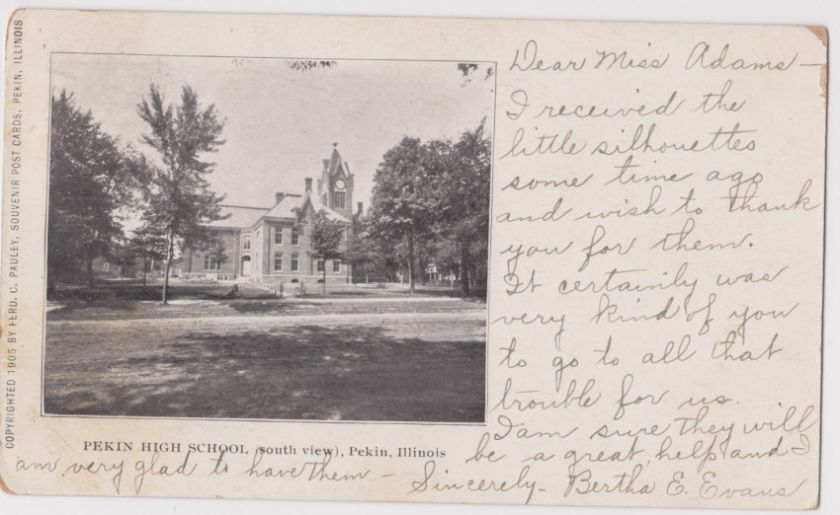 COPYRIGHTED 1905 BY FERD. C. PAULEY, SOUVENIR POST CARDS, PEKIN, ILLINOIS
PEKIN HIGH SCHOOL (south view), Pekin, Illinois
Dear Miss Adams—
I received the
little silhouettes
some time ago
and wish to thank
you for them.
It certainly was
very kind of you
to go to all that
trouble for us.
I am sure they will
be a great help and I
am very glad to have them –
Sincerely- Bertha E. Evans